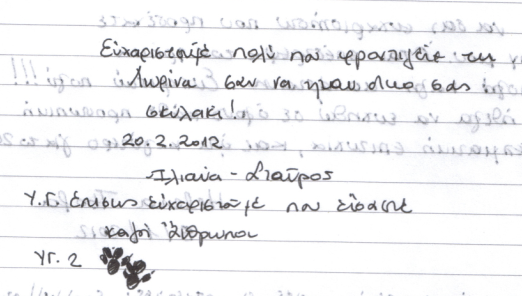 Ευχαριστούμε πολύ που φροντίζετε την
Λωρίνα σαν να ήταν δικό σας
σκυλάκι!
20.2.2012
Ιλιάνα - Σταύρος
Υ.Γ. Επίσης ευχαριστούμε που είσαστε
καλοί άνθρωποι
ΥΓ. 2